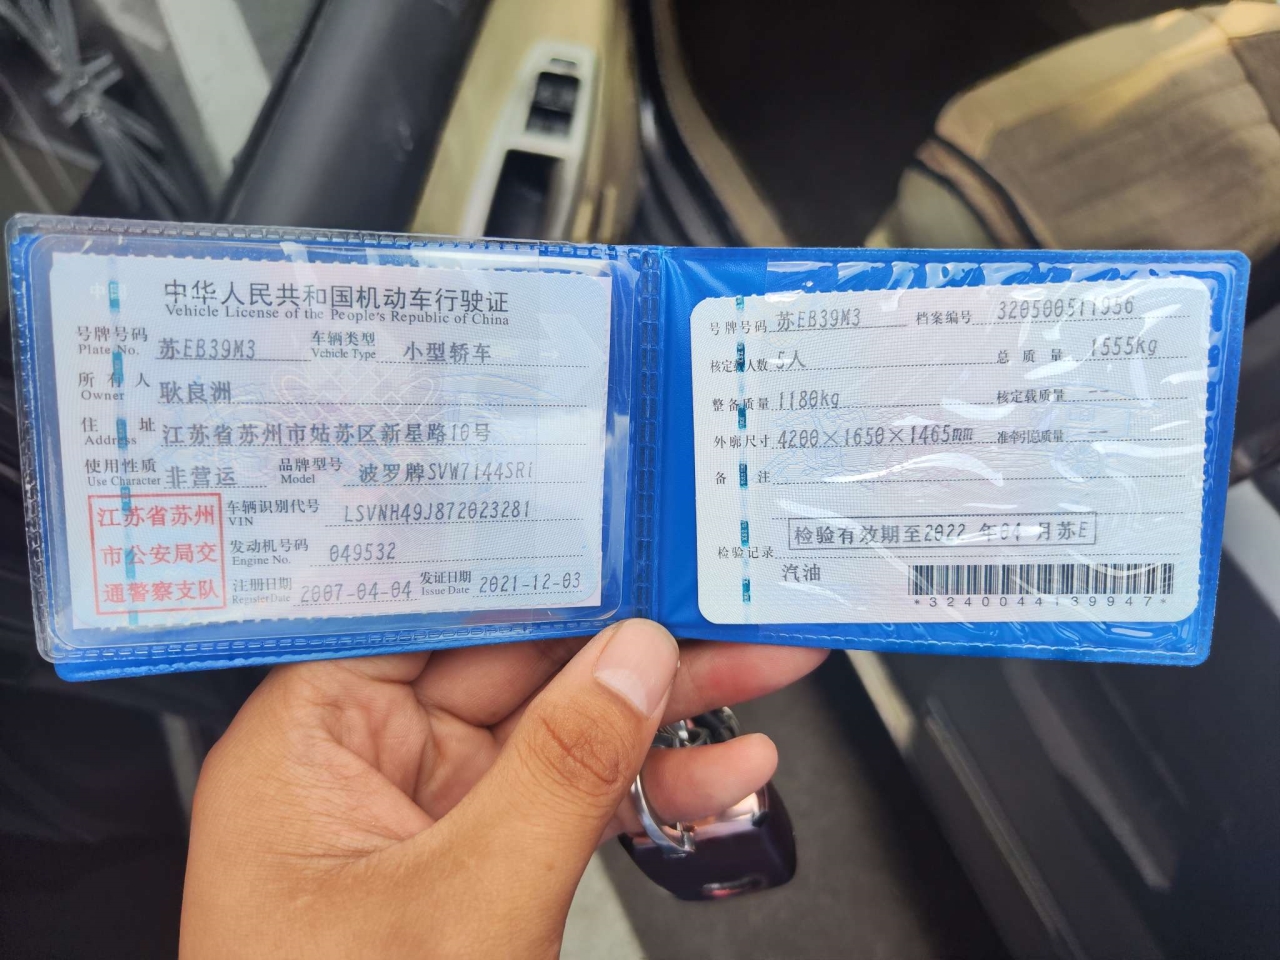 中华人民共和国机动车行驶证
Vehicle License of the People's Republic of China
号牌号码 苏EB39M3 车辆类型 小型轿车
Plate No. Vehicle Type
所有人 耿良洲
Owner
住址 江苏省苏州市姑苏区新星路10号
Address
使用性质 非营运 品牌型号 波罗牌SVW7144SRi
Use Character Model
江苏省苏州
市公安局交
通警察支队
车辆识别代号 LSVNH49J872023281
VIN
发动机号码 049532
Engine No.
注册日期 2007-04-04 发证日期 2021-12-03
Register Date Issue Date
号牌号码 苏EB39M3 档案编号 320500511956
核定载人数 5人 总质量 1555kg
整备质量 1180kg 核定载质量 --
外廓尺寸 4200×1650×1465mm 准牵引总质量 --
备注
检验有效期至2022年04月苏E
检验记录
汽油
*3240044139947*